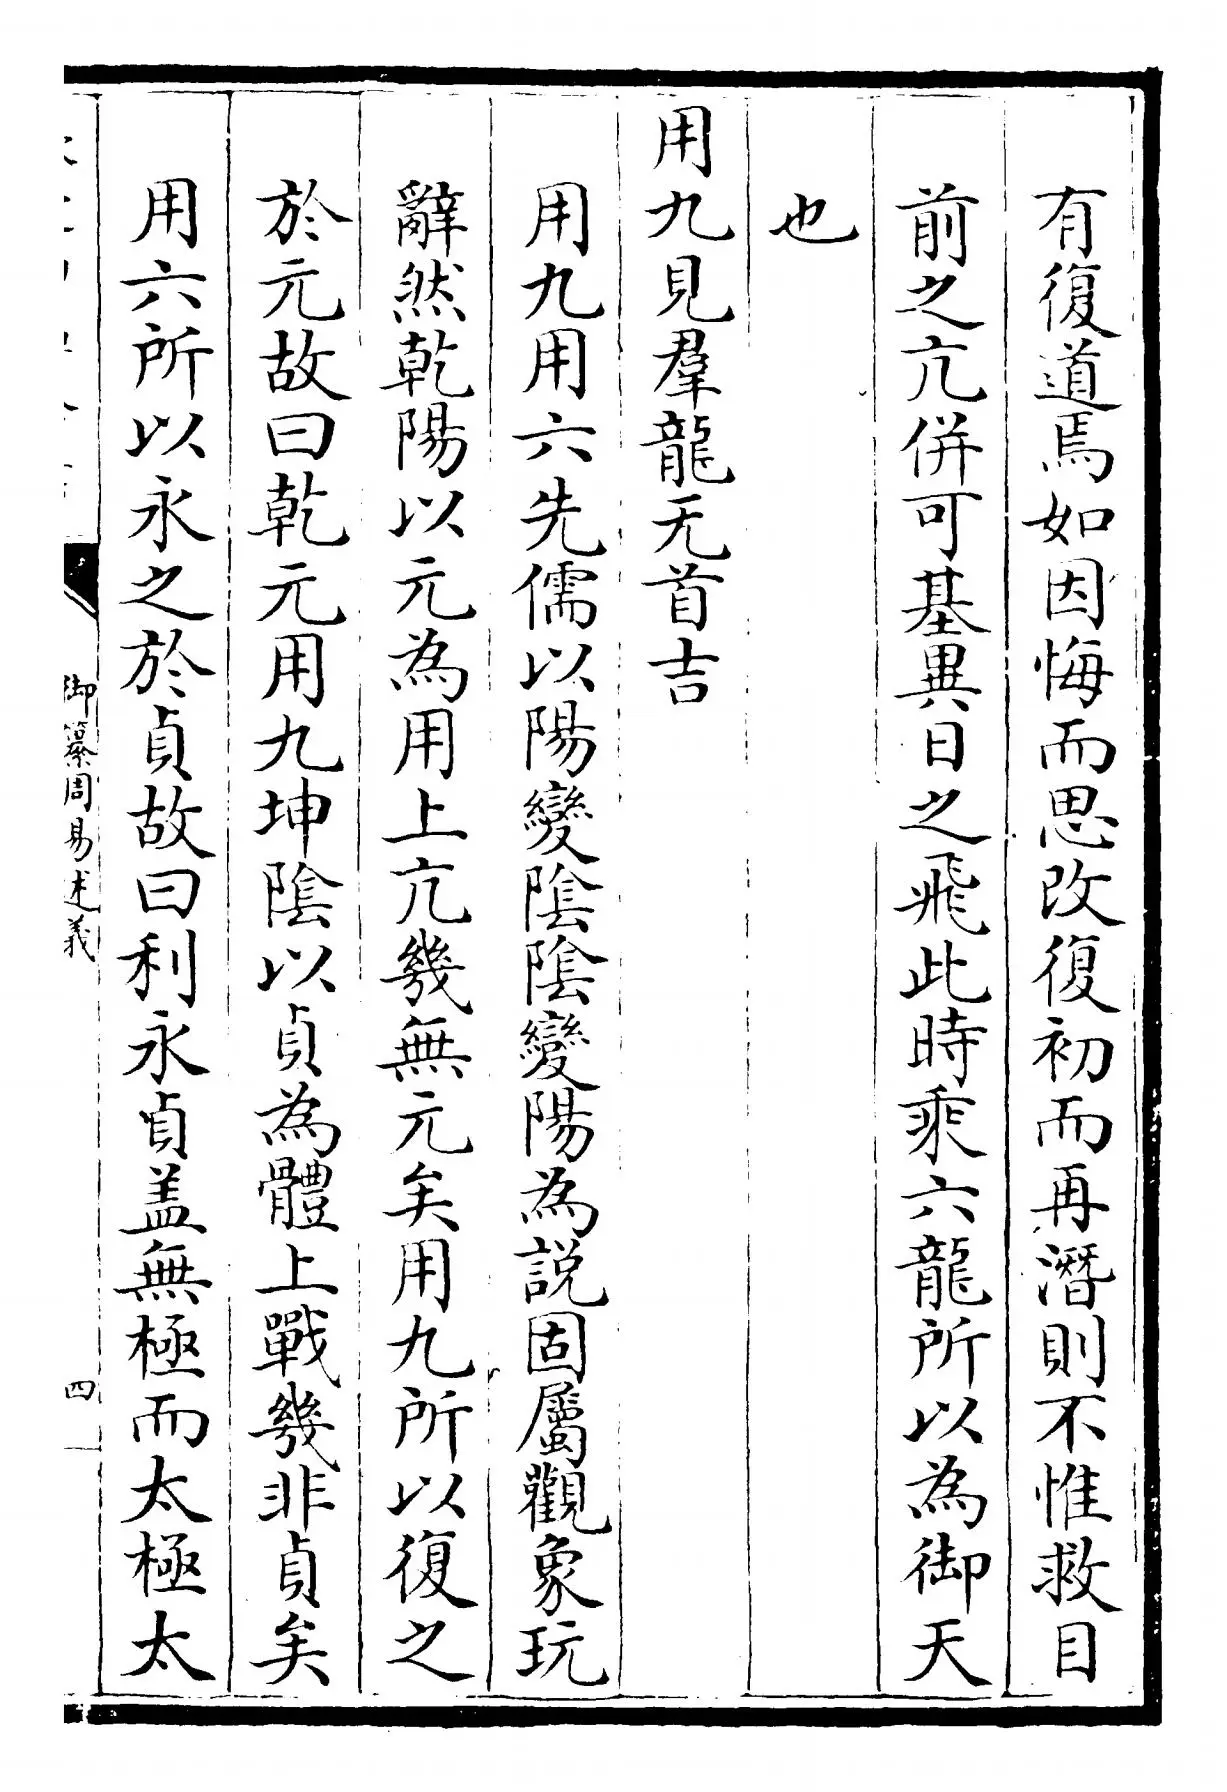 有復道焉如因悔而思改復初而再潛則不惟救目
前之亢併可基異日之飛此時乘六龍所以為御天
也
用九見羣龍无首吉
用九用六先儒以陽變陰陰變陽為說固屬觀象玩
辭然乾陽以元為用上亢幾無元矣用九所以復之
於元故曰乾元用九坤陰以貞為體上戰幾非貞矣
用六所以永之於貞故曰利永貞盖無極而太極太
御纂周易述義
四